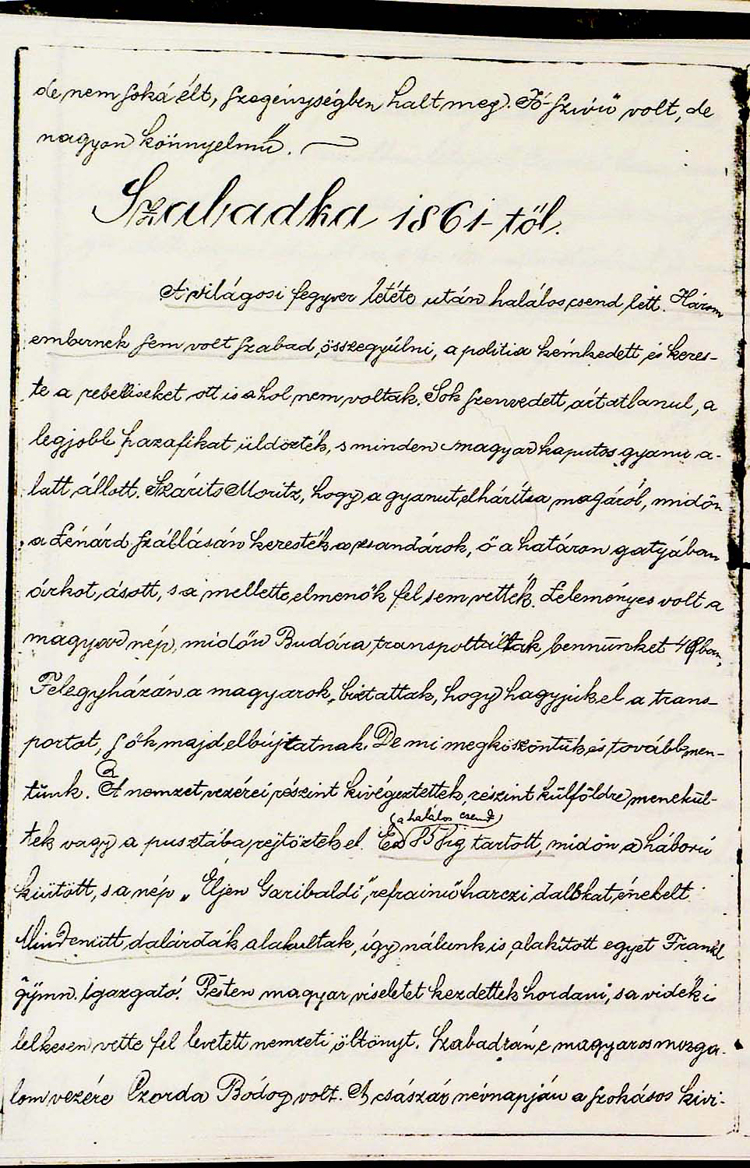 de nem soká élt, szegénységben halt meg. Jó szivű volt, de
nagyon könnyelmű.
Szabadka 1861-től.
A világosi fegyver letéte után halálos csend lett. Három
embernek sem volt szabad összegyűlni, a politia kémkedett, és keres-
te a rebelliseket ott is ahol nem voltak. Sok szenvedett ártatlanul, a
legjobb hazafikat üldözték, s minden magyar kaputos gyanu a-
latt állott. Szárits Moritz, hogy a gyanut elhárítsa magáról, midőn
a Lénárd szállásán keresték a zsandárok, ő a határon gatyában
árkot ásott, s a mellette elmenők fel sem vették. Leleményes volt a
magyar nép, midőn Budára transpoltáltak bennünket 49ben,
Felegyházán a magyarok biztattak, hogy hagyjuk el a trans-
portot, s ők majd elbújtatnak. De mi megköszöntük és tovább men-
tünk. A nemzet vezérei részint kivégeztettek, részint külföldre menekül-
tek vagy a pusztába rejtőztek el. Ez (a halálos csend) 59ig tartott, midőn a háború
kiütött, s a nép „Éljen Garibaldi" refrainü harczi dalokat énekelt.
Mindenütt dalárdák alakultak, így nálunk is, alakított egyet Frankl
gymn. igazgató. Pesten magyar viseletet kezdettek hordani, s a vidék is
lelkesen vette fel levetett nemzeti öltönyt. Szabadkán e magyaros mozga-
lom vezére Czorda Bódog volt. A császár névnapján a szokásos kivi-